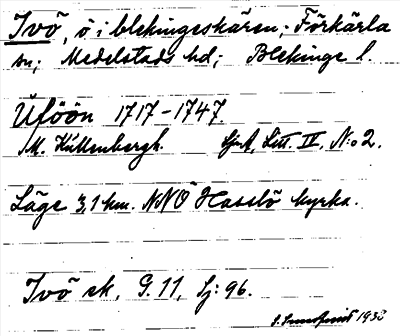 Ivö, ö i blekingeskären; Förkärla
sn; Medelstads hd; Blekinge l.
Üföön 1717-1747.
M. Küllenbergh. Litt. IV, N:o 2.
Läge 3,1 km. NNÖ Hasslö kyrka.
Ivö sk, G. 11, Lj: 96.
1938